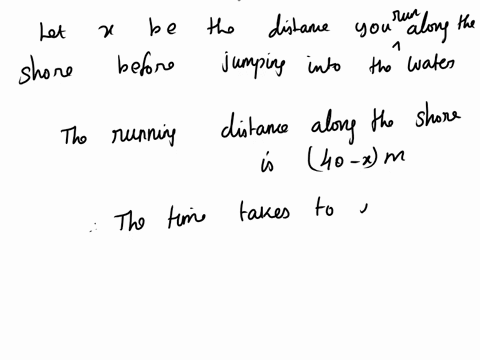 Let x be the distance you run along the
shore before jumping into the water
The running distance along the shore
is (40-x) m
∴ The time takes to